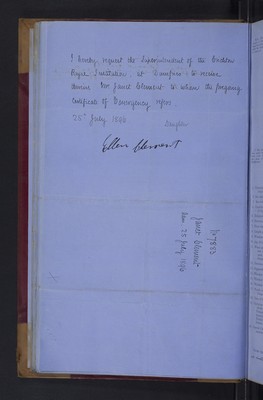 I hereby request the Superintendent of the Crichton
Royal Institution at Dumfries to receive
therein Mrs Janet Clement to whom the foregoing
Certificate of Emergency refers
25th July 1896
Daughter
Ellen Clement
No 7883
Janet Clement
Adm 25 July 1896